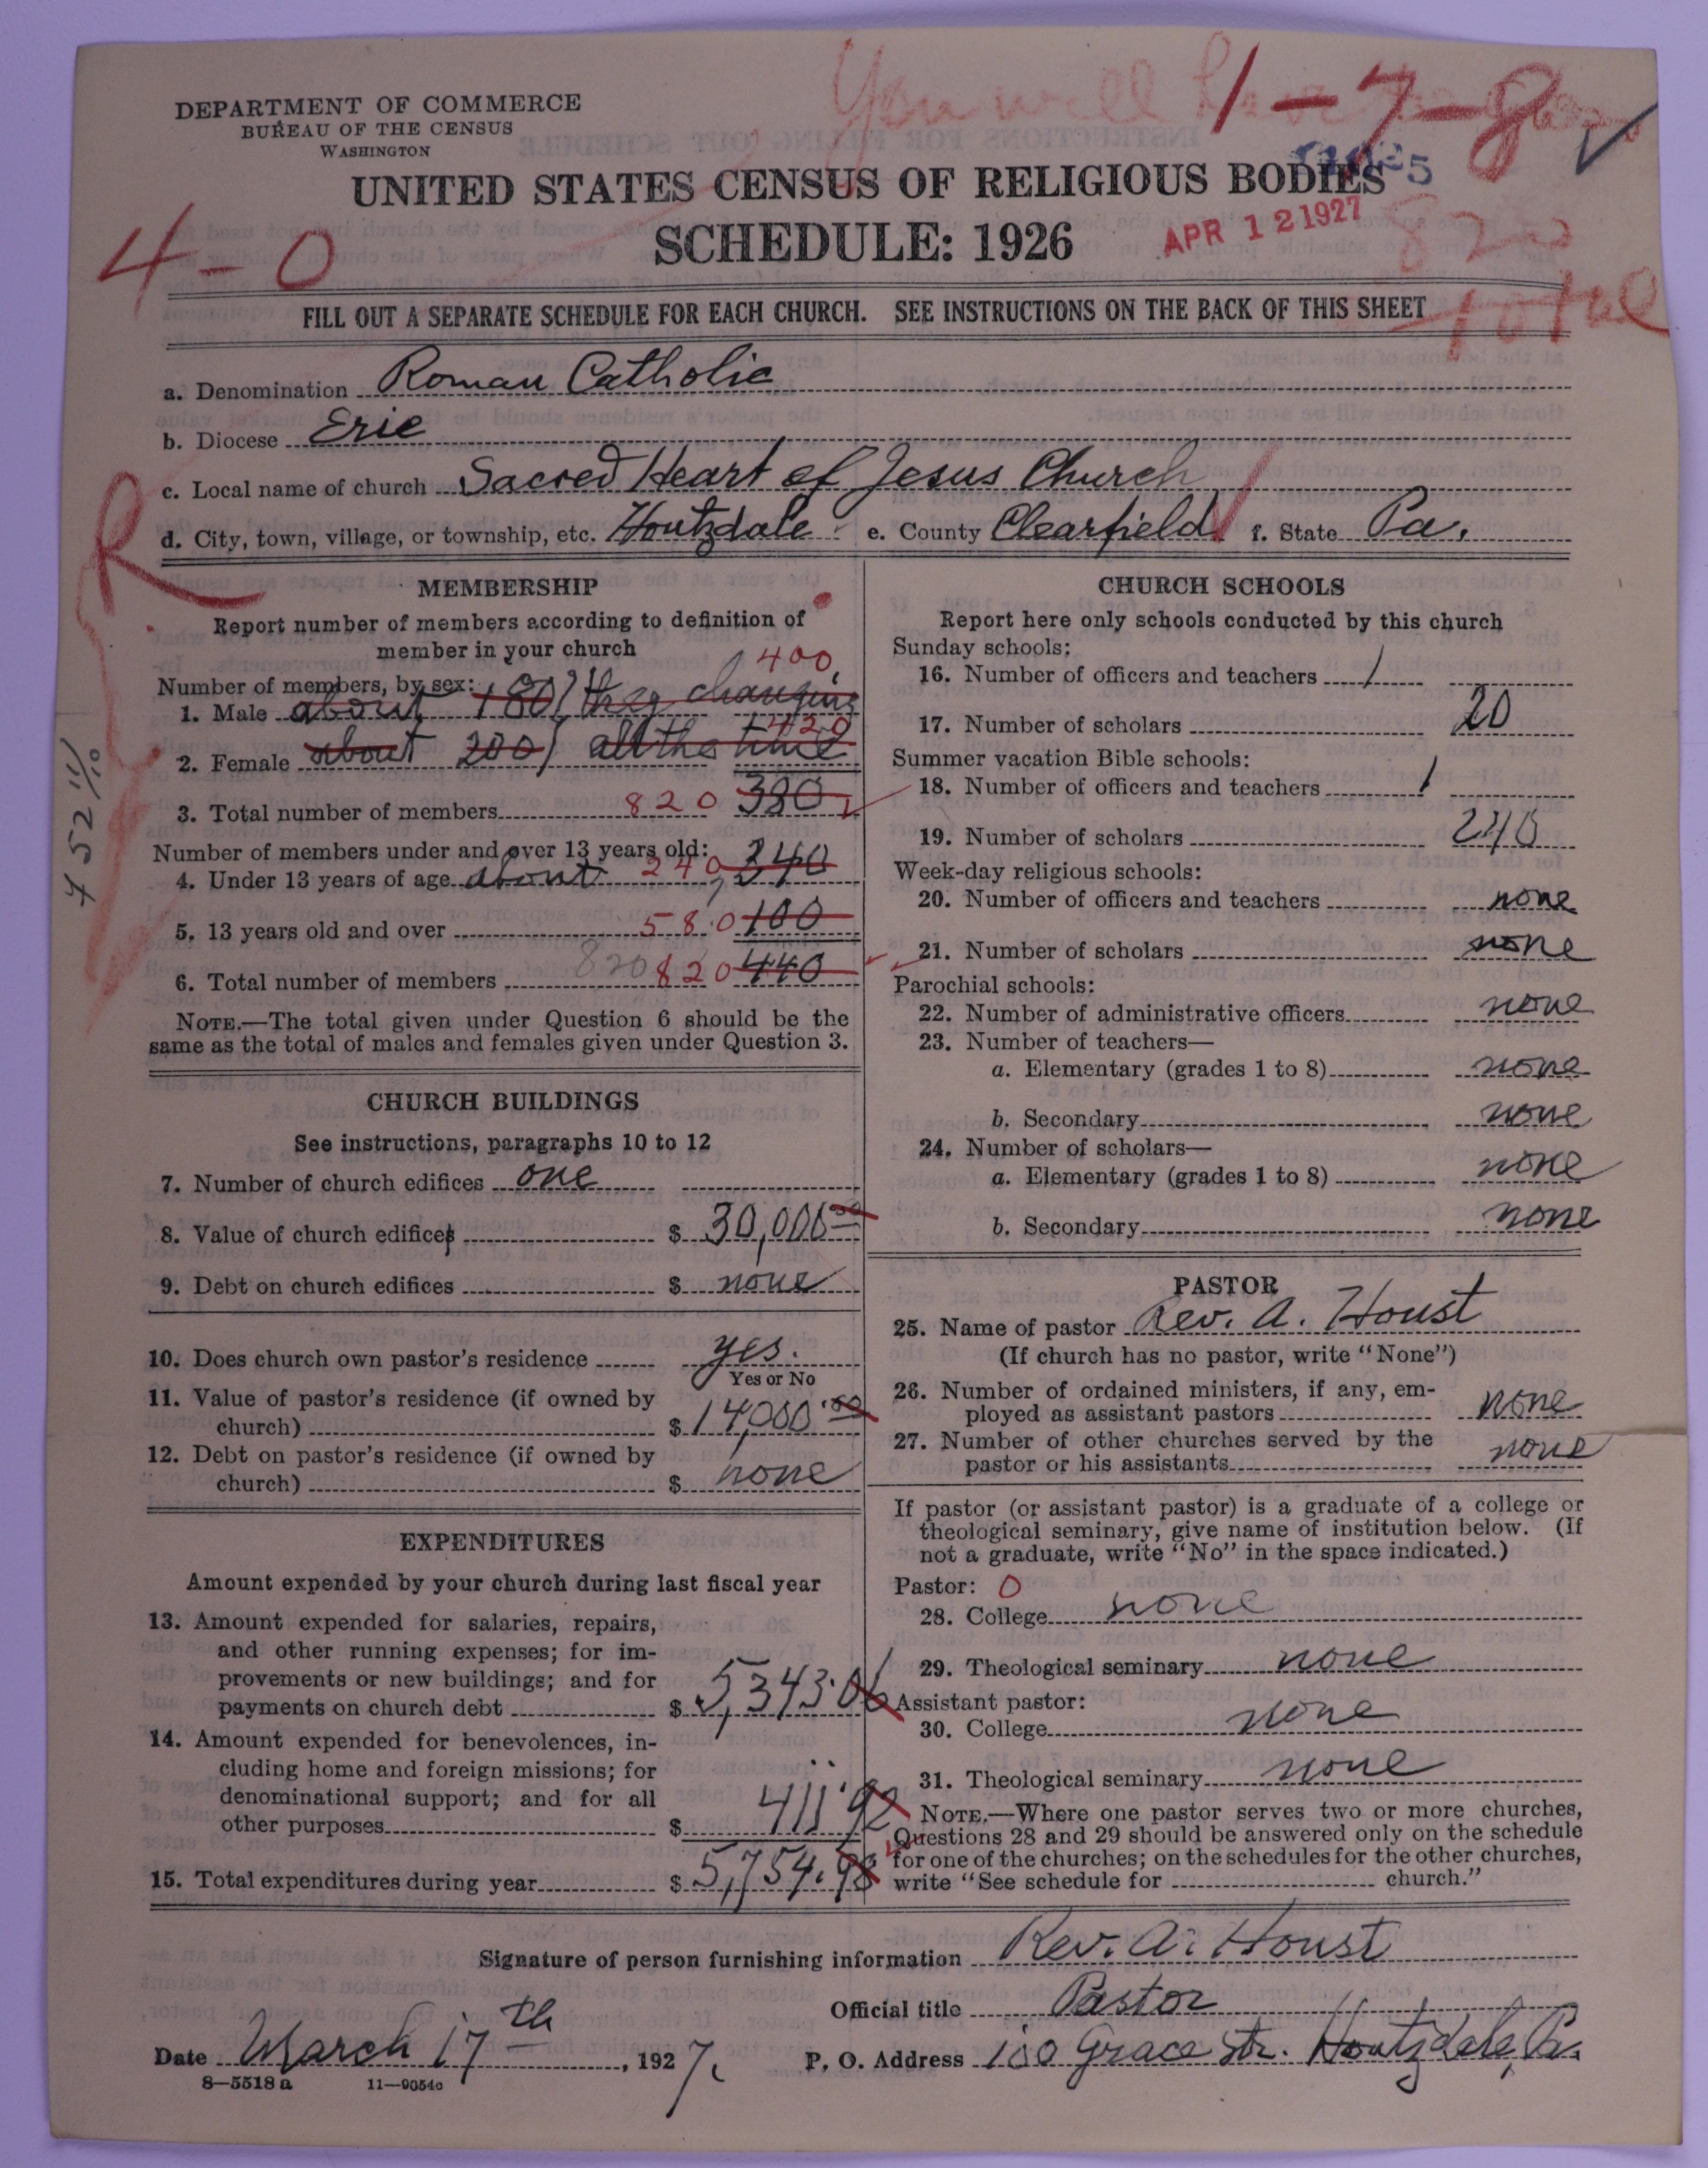 DEPARTMENT OF COMMERCE
BUREAU OF THE CENSUS
WASHINGTON
You will
1-7-8
UNITED STATES CENSUS OF RELIGIOUS BODIES
SCHEDULE: 1926
APR 12 1927
820
total
4-0
FILL OUT A SEPARATE SCHEDULE FOR EACH CHURCH. SEE INSTRUCTIONS ON THE BACK OF THIS SHEET
a. Denomination Roman Catholic
b. Diocese Erie
c. Local name of church Sacred Heart of Jesus Church
d. City, town, village, or township, etc. Houtzdale e. County Clearfield f. State Pa.
R
MEMBERSHIP
Report number of members according to definition of
member in your church
Number of members, by sex: 400
1. Male about 180 they changing
420
2. Female about 200 all the time
3. Total number of members 820 380
Number of members under and over 13 years old:
4. Under 13 years of age about 240 240
5. 13 years old and over 580 100
6. Total number of members 820 820 440
NOTE.—The total given under Question 6 should be the
same as the total of males and females given under Question 3.
CHURCH BUILDINGS
See instructions, paragraphs 10 to 12
7. Number of church edifices one
8. Value of church edifices $ 30,000 00
9. Debt on church edifices $ none
10. Does church own pastor's residence yes.
Yes or No
11. Value of pastor's residence (if owned by
church) $ 14,000.00
12. Debt on pastor's residence (if owned by
church) $ none
EXPENDITURES
Amount expended by your church during last fiscal year
13. Amount expended for salaries, repairs,
and other running expenses; for im-
provements or new buildings; and for
payments on church debt $ 5,343.06
14. Amount expended for benevolences, in-
cluding home and foreign missions; for
denominational support; and for all
other purposes $ 411.92
15. Total expenditures during year $ 5,754.98
CHURCH SCHOOLS
Report here only schools conducted by this church
Sunday schools:
16. Number of officers and teachers 1
17. Number of scholars 20
Summer vacation Bible schools:
18. Number of officers and teachers 1
19. Number of scholars 240
Week-day religious schools:
20. Number of officers and teachers none
21. Number of scholars none
Parochial schools:
22. Number of administrative officers none
23. Number of teachers—
a. Elementary (grades 1 to 8) none
b. Secondary none
24. Number of scholars—
a. Elementary (grades 1 to 8) none
b. Secondary none
PASTOR
25. Name of pastor Rev. A. Houst
(If church has no pastor, write "None")
26. Number of ordained ministers, if any, em-
ployed as assistant pastors none
27. Number of other churches served by the
pastor or his assistants none
If pastor (or assistant pastor) is a graduate of a college or
theological seminary, give name of institution below. (If
not a graduate, write "No" in the space indicated.)
Pastor: 0
28. College none
29. Theological seminary none
Assistant pastor:
30. College none
31. Theological seminary none
NOTE.—Where one pastor serves two or more churches,
Questions 28 and 29 should be answered only on the schedule
for one of the churches; on the schedules for the other churches,
write "See schedule for church."
Signature of person furnishing information Rev. A. Houst
Official title Pastor
Date March 17th, 1927. P. O. Address 100 Grace Str. Houtzdale, Pa.
8—5518 a 11—9054c